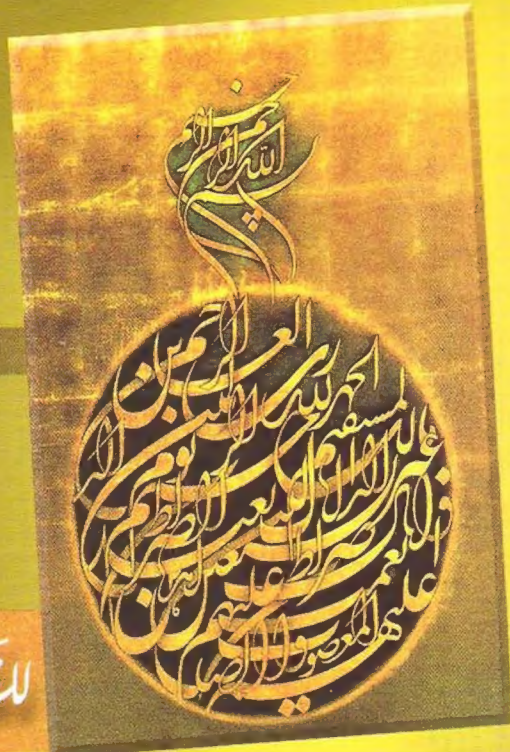 بسم الله الرحمن الرحيم
الحمد لله رب العلمين
الرحمن الرحيم
ملك يوم الدين
اياك نعبد واياك نستعين
اهدنا الصراط المستقيم
صراط الذين انعمت عليهم
غير المغضوب عليهم ولا الضالين